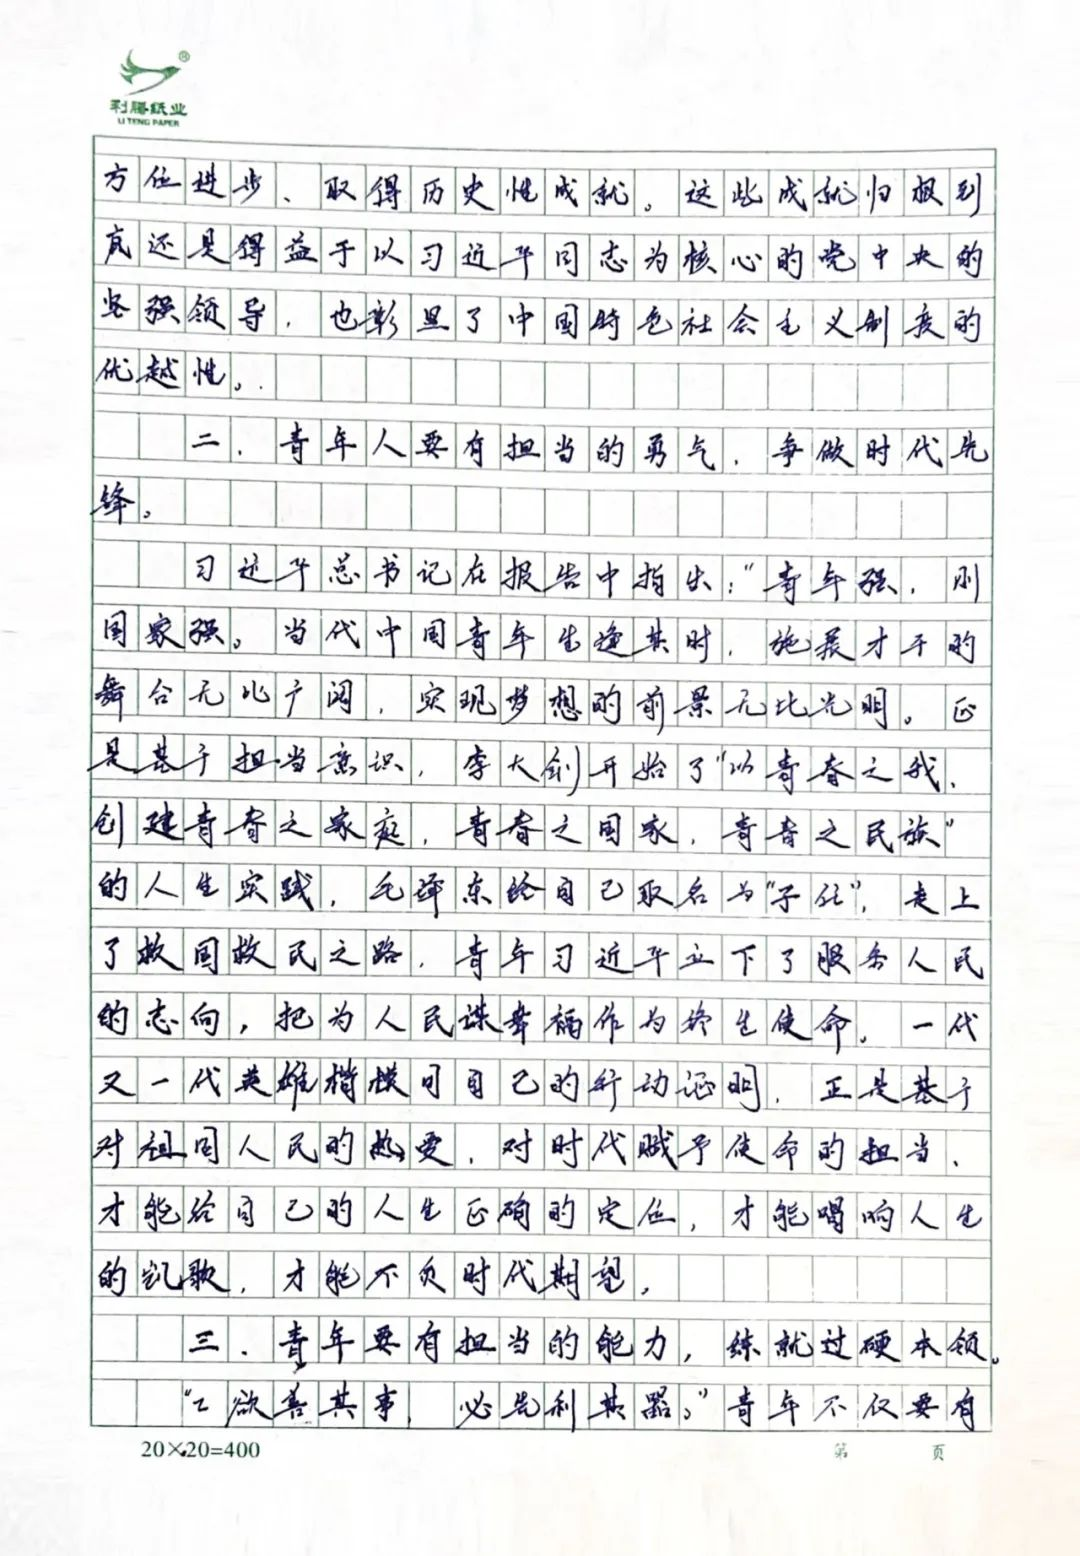 利腾纸业
LI TENG PAPER
方位进步、取得历史性成就。这些成就归根到
底还是得益于以习近平同志为核心的党中央的
坚强领导，也彰显了中国特色社会主义制度的
优越性。
二、青年人要有担当的勇气，争做时代先
锋。
习近平总书记在报告中指出：“青年强，则
国家强。当代中国青年生逢其时，施展才干的
舞台无比广阔，实现梦想的前景无比光明。正
是基于担当意识，李大钊开始了“以青春之我，
创建青春之家庭，青春之国家，青春之民族”
的人生实践，毛泽东给自己取名为“子任”，走上
了救国救民之路，青年习近平立下了服务人民
的志向，把为人民谋幸福作为终生使命。一代
又一代英雄楷模用自己的行动证明，正是基于
对祖国人民的热爱，对时代赋予使命的担当，
才能给自己的人生正确的定位，才能唱响人生
的凯歌，才能不负时代期望。
三、青年要有担当的能力，练就过硬本领。
“工欲善其事，必先利其器。”青年不仅要有
20×20=400 第 页